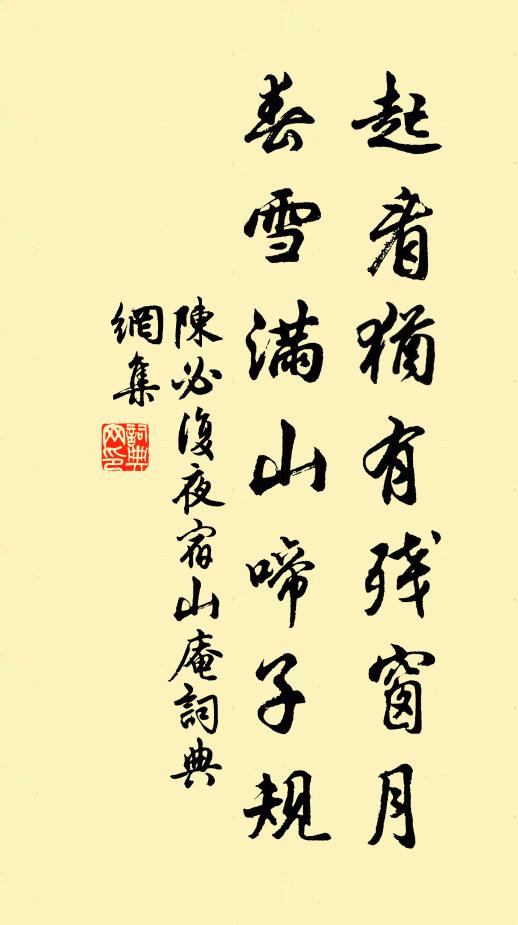 起看猶有残窗月
春雪满山啼子規
陳必復夜宿山庵詞典
網集
詞典網印